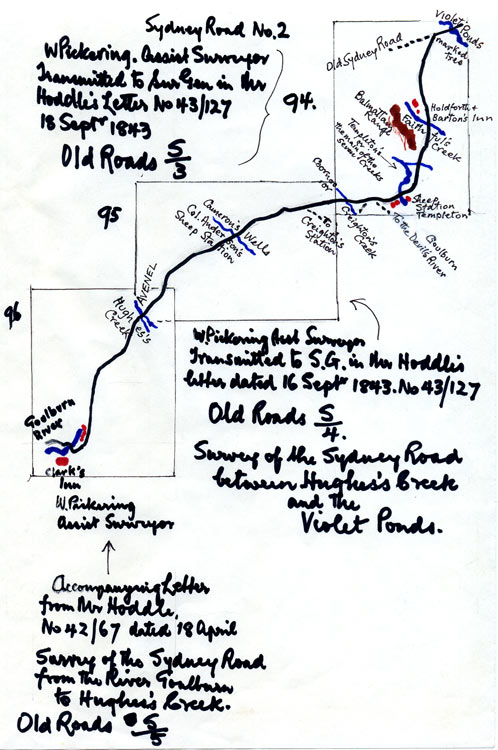 Sydney Road No.2
W Pickering. Assist Surveyor
Transmitted to Sur Gen in Mr
Hoddle's Letter No 43/127
18 Septr 1843
Old Roads S/3
94.
Violet Ponds
marked Tree
Old Sydney Road
Holdforth +
Barton's Inn
Faithful's
Creek
Range
Templeton's
Seven Creeks
Sheep
Station
Templeton
To the Devils River
Goulburn
Creighton's
Creek
To
Creighton's
Station
95
Cameron's Wells
Col. Anderson's
Sheep Station
AVENEL
Hughes's
Creek
96
Goulburn
River
Clark's
Inn
W. Pickering
Assist Surveyor
W. Pickering Asst Surveyor
Transmitted to S.G. in Mr Hoddle's
letter dated 16 Septr 1843. No 43/127
Old Roads S/4.
Survey of the Sydney Road
between Hughes's Creek
and the
Violet Ponds.
Accompanying Letter
from Mr Hoddle,
No 42/67 dated 18 April
Survey of the Sydney Road
from the River Goulburn
to Hughes's Creek.
Old Roads S/5